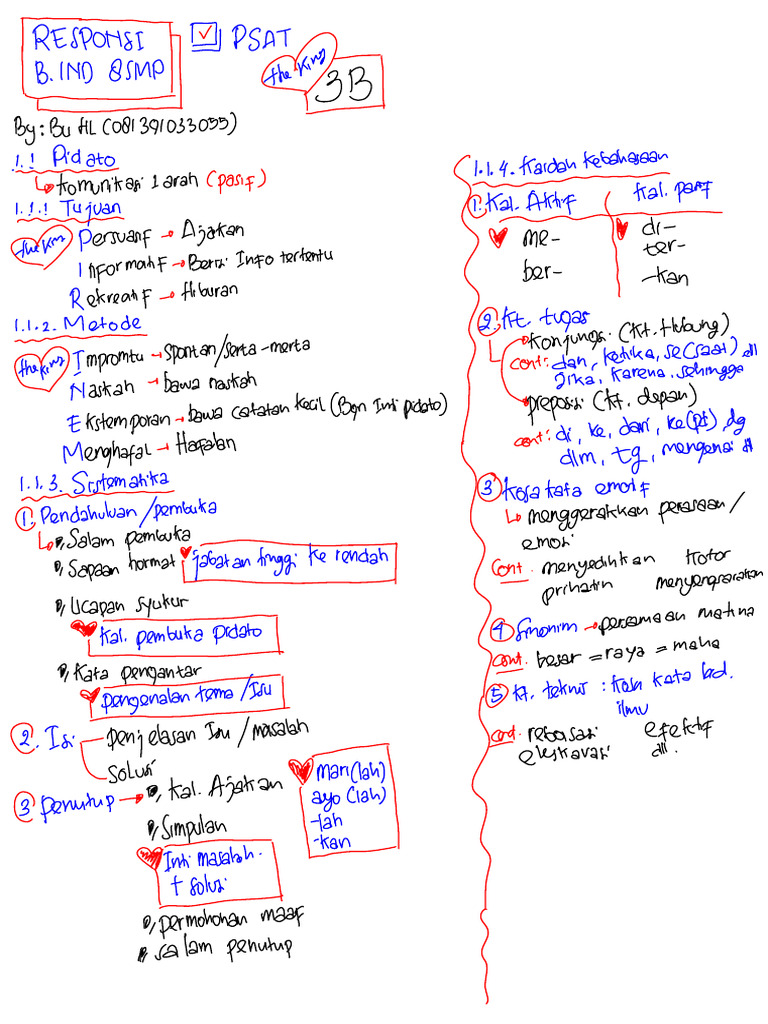 RESPONSI
B. IND 8SMP
PSAT
the King
3B
By: Bu AL (081391033055)
1.1 Pidato
Komunikasi 1 arah (pasif)
1.1.1 Tujuan
the King
Persuasif → Ajakan
Informatif → Berisi Info tertentu
Rekreatif → Hiburan
1.1.2. Metode
the King
Impromtu → Spontan/serta-merta
Naskah → bawa naskah
Ekstemporan → bawa catatan kecil (Bgn Inti pidato)
Menghafal → Hafalan
1.1.3. Sistematika
1. Pendahuluan/pembuka
Salam pembuka
Sapaan hormat
jabatan tinggi ke rendah
Ucapan syukur
Kal. pembuka Pidato
Kata pengantar
pengenalan tema/Isu
2. Isi
penjelasan Isu/masalah
Solusi
3 penutup →
Kal. Ajakan
mari(lah)
ayo(lah)
-lah
-kan
Simpulan
Inti masalah
+ solusi
permohonan maaf
salam penutup
1.1.4. Kaidah kebahasaan
1. Kal. Aktif
Kal. pasif
me-
di-
ter-
ber-
-kan
2. Kt. tugas
Konjungsi (Kt. Hubung)
cont: dan, ketika, se(saat) dll
jika, karena, sehingga
preposisi (kt. depan)
cont: di, ke, dari, ke(pd), dg
dlm, tg, mengenai dll
3 Kosa kata emotif
menggerakkan perasaan/
emosi
cont. menyedihkan kotor
prihatin menyengsarakan
4 Sinonim → persamaan makna
cont. besar = raya = maha
5 kt. teknis : kosa kata bid.
ilmu
cont. reboisasi efektif
ekskavasi dll.